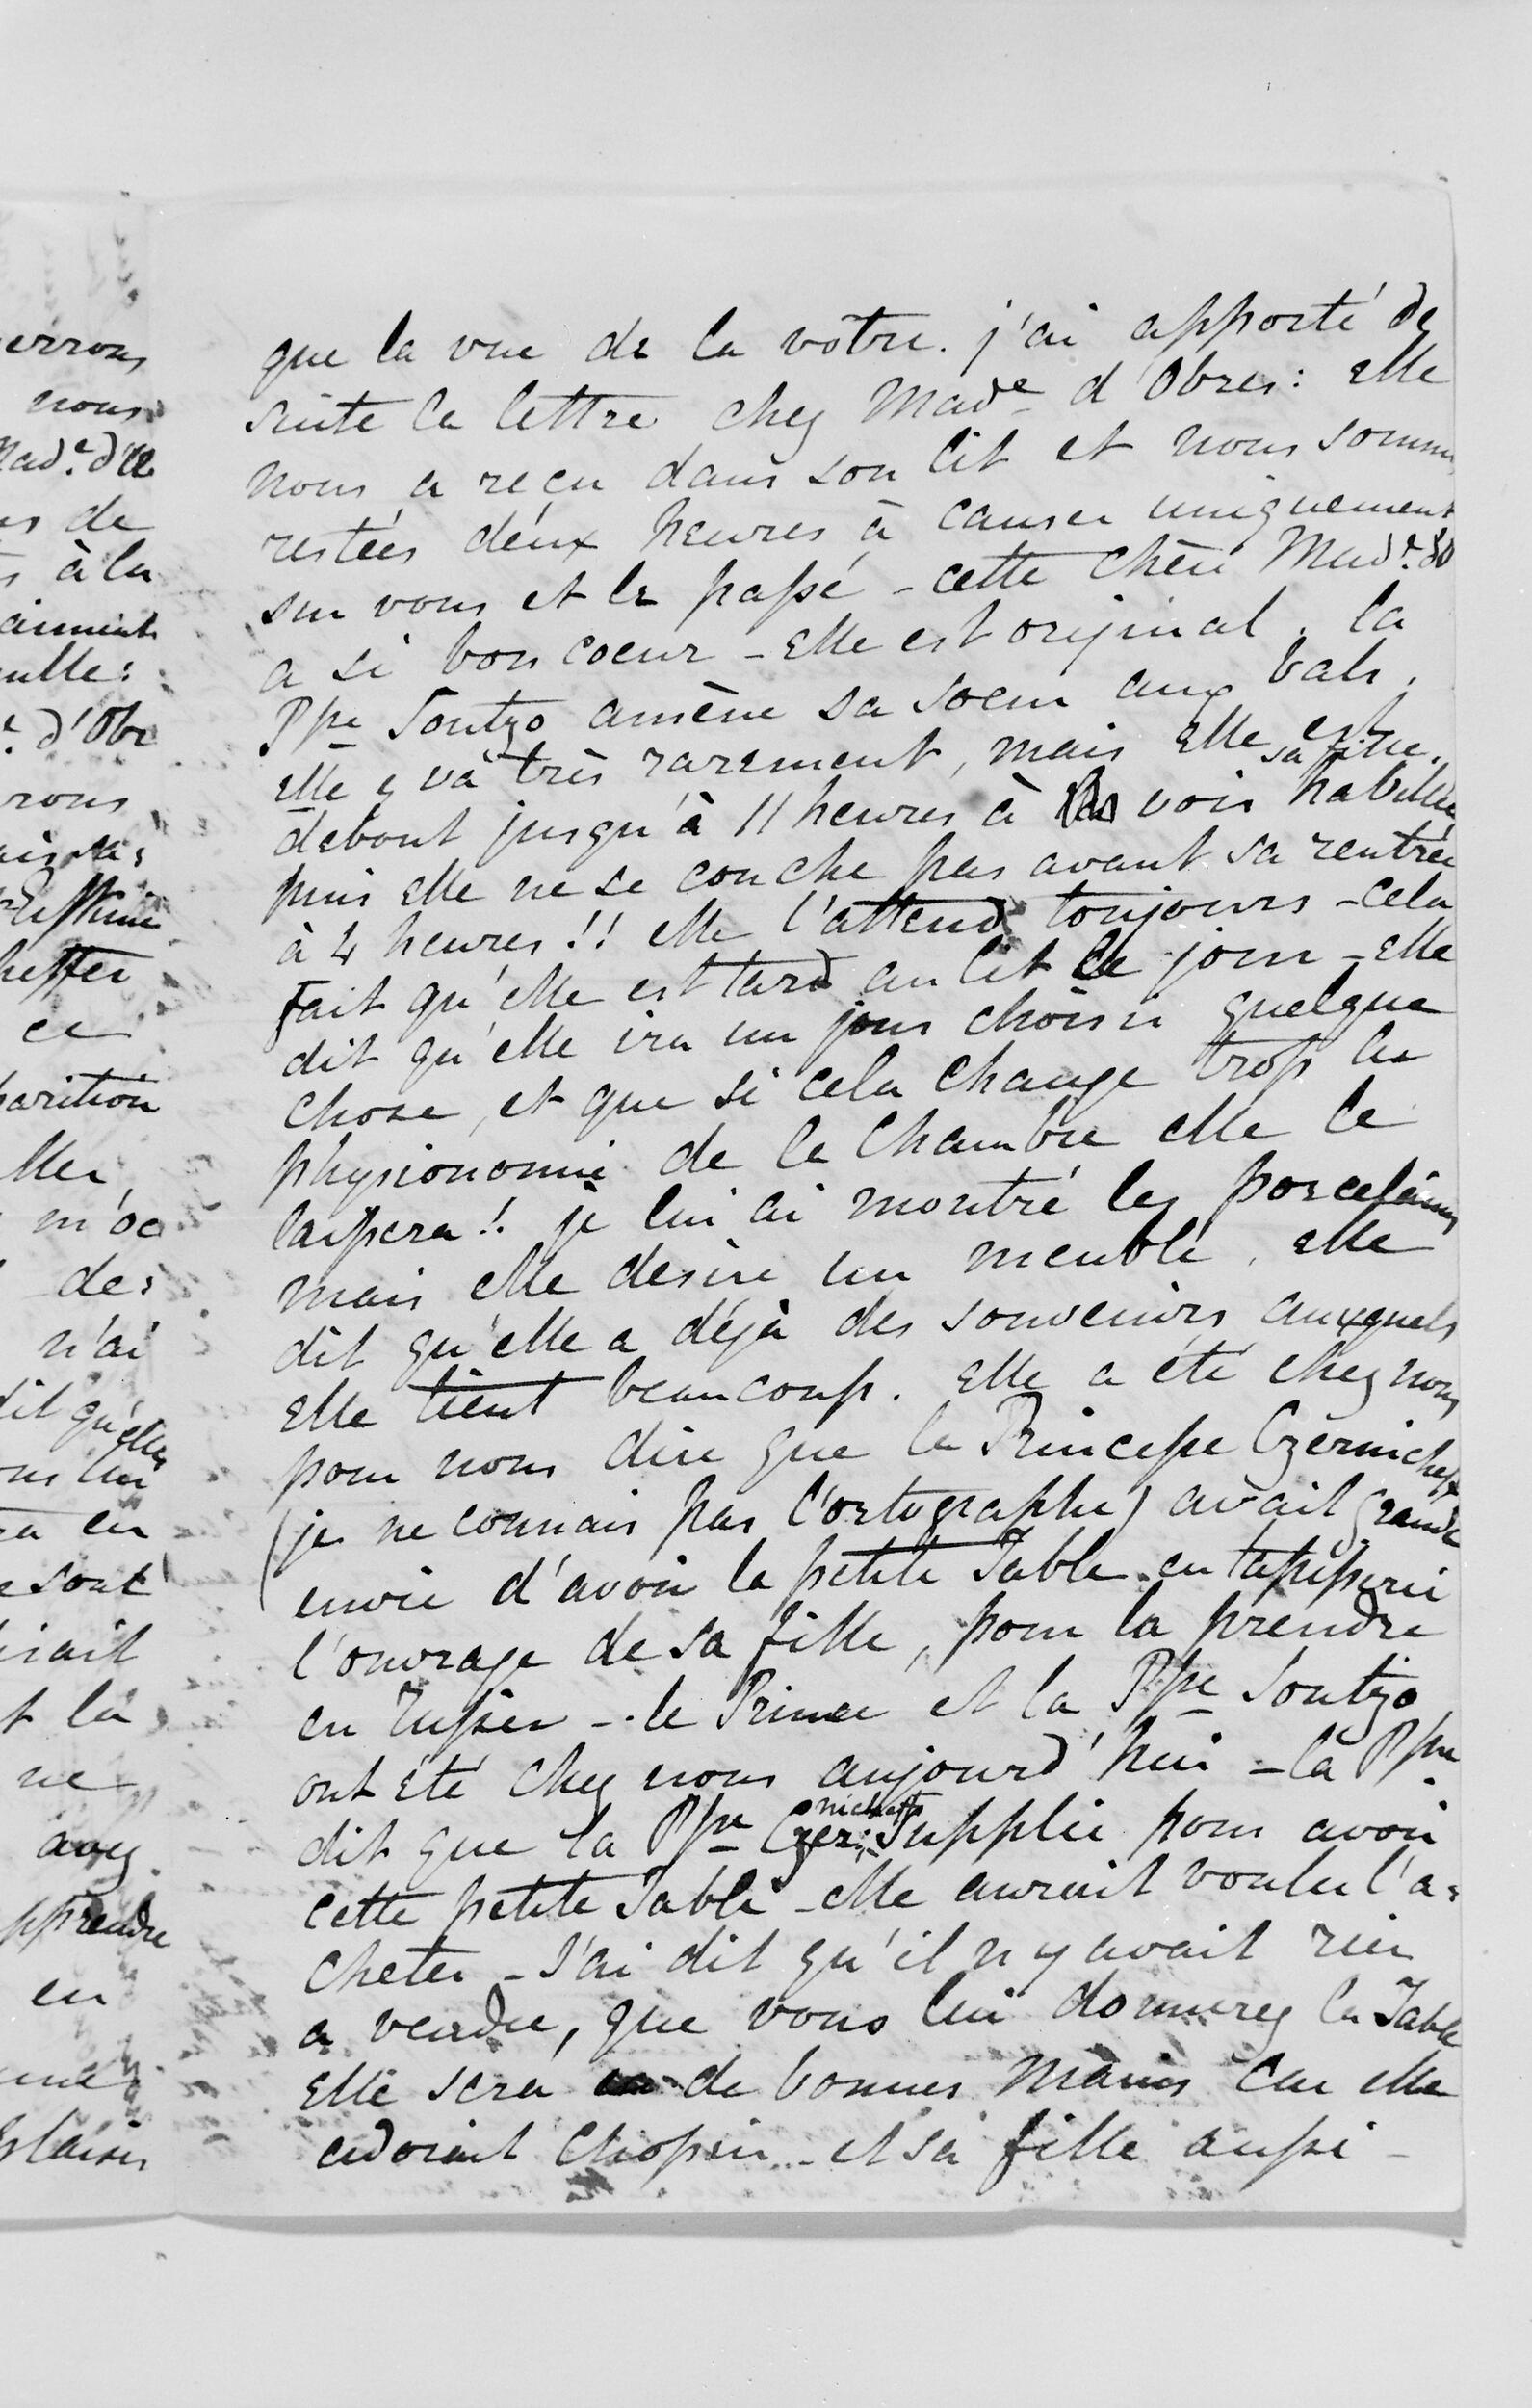 que la vue de la vôtre. j'ai apporté de
suite la lettre chez Made d'Obres: elle
nous a reçu dans son lit et nous sommes
restées deux heures à causer uniquement
sur vous et le passé - cette chère Made
a si bon coeur - Elle est original. la
Psse Soutzo amène sa soeur aux bals.
elle y và très rarement, mais elle est
debout jusqu'à 11 heures à voir sa fille habillée
puis elle ne se couche pas avant sa rentrée
à 4 heures!! elle l'attend toujours - cela
fait qu'elle est tard au lit le jour - Elle
dit qu'elle ira un jour choisir quelque
chose, et que si cela change trop la
physionomie de la Chambre elle le
laissera! je lui ai montré les porcelaines
mais elle desire un meuble. elle
dit qu'elle a déjà des souvenirs auxquels
elle tient beaucoup. Elle a été chez nous
pour nous dire que la Princesse Czernicheff
(je ne connais pas l'ortographe) avait grande
envie d'avoir la petite Table en tapisserie
l'ouvrage de sa fille, pour la prendre
en Russie - le Prince et la Psse Soutzo
ont été chez nous aujourd'hui - la Psse
dit que la Psse Czer:nicheff supplie pour avoir
cette petite Table - elle aurait voulu l'a=
cheter - J'ai dit qu'il n'y avait rien
a vendre, que vous lui donnerez la Table
Elle sera de bonnes mains car elle
adorait Chopin - et sa fille aussi -
errons
nous
Made d'O
de
à la
d'Obr
ce
parition
m'oc
des
n'ai
dit qu'elle
en
sont
là
ne
avez
pprendre
en